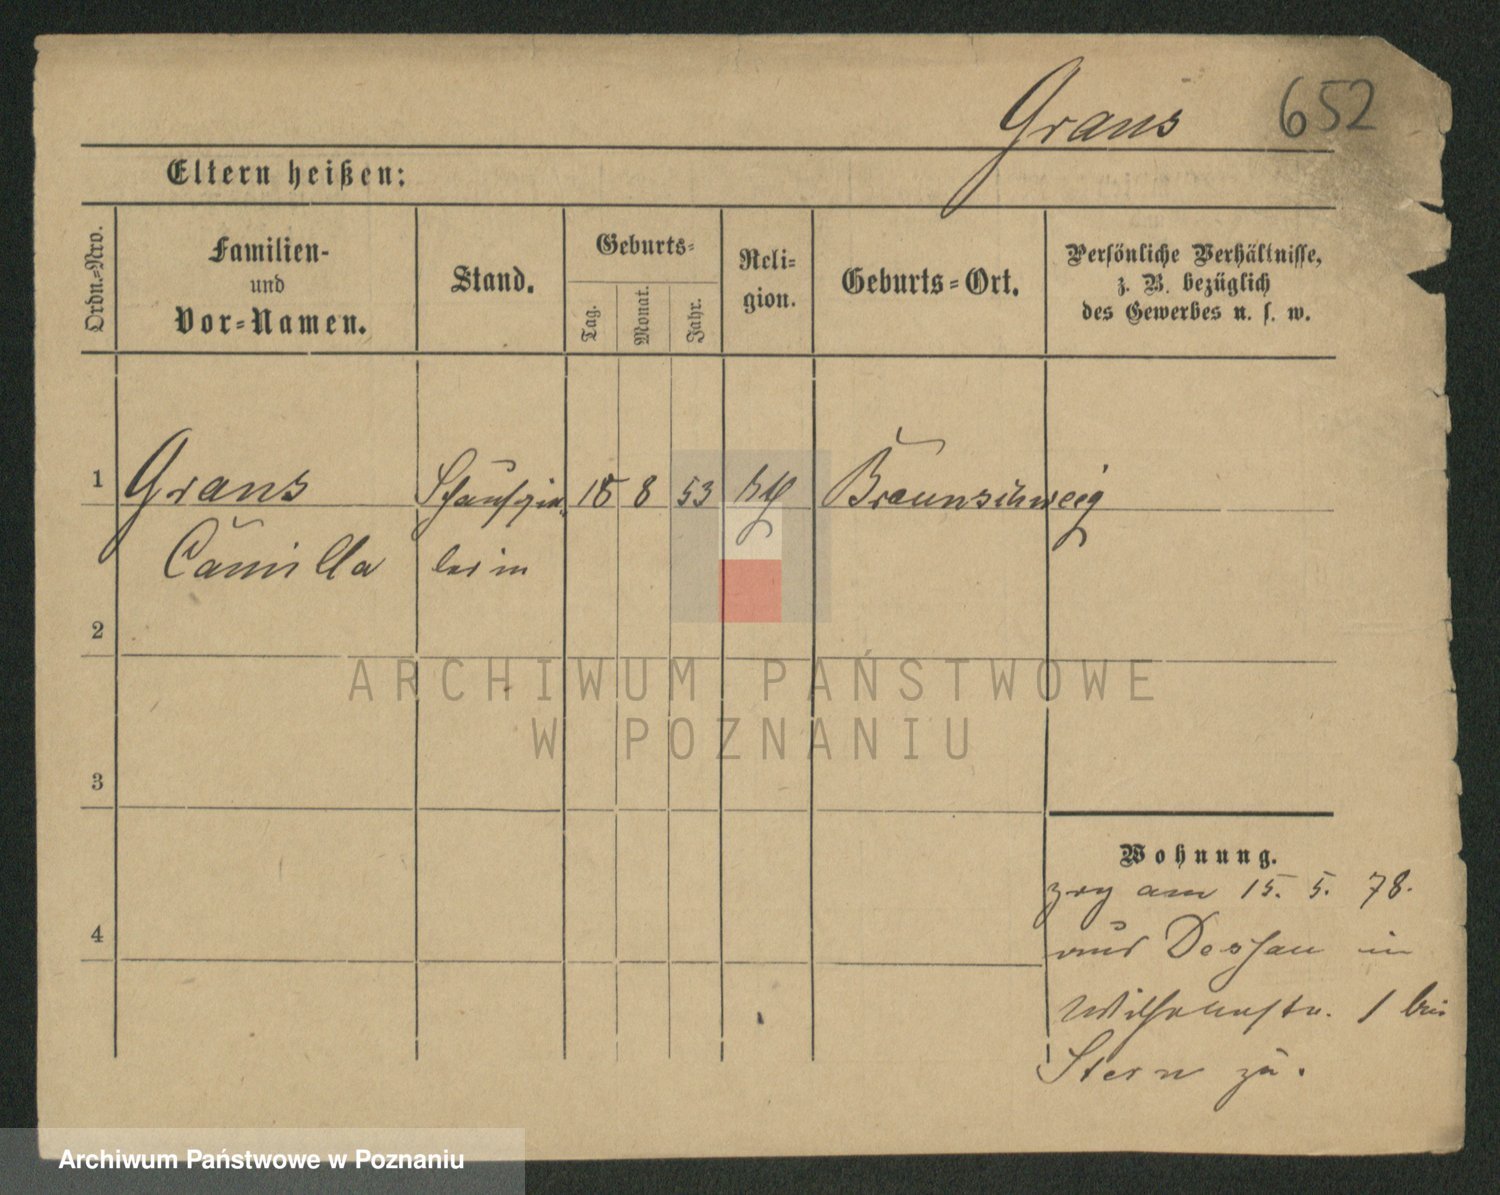 Grans 652
Eltern heißen:
Ordn.-Nro.
Familien-
und
Vor-Namen.
Stand.
Geburts-
Tag.
Monat.
Jahr.
Reli-
gion.
Geburts-Ort.
Persönliche Verhältnisse,
z. B. bezüglich
des Gewerbes u. s. w.
1 Grans Schauspie- 18 8 53 Braunschweig
Camilla lerin
2
3
4
Wohnung.
zog am 15. 5. 78.
aus Dessau in
Wilhelmstr. 1 bei
Stern zu.
ARCHIWUM PAŃSTWOWE
W POZNANIU
Archiwum Państwowe w Poznaniu